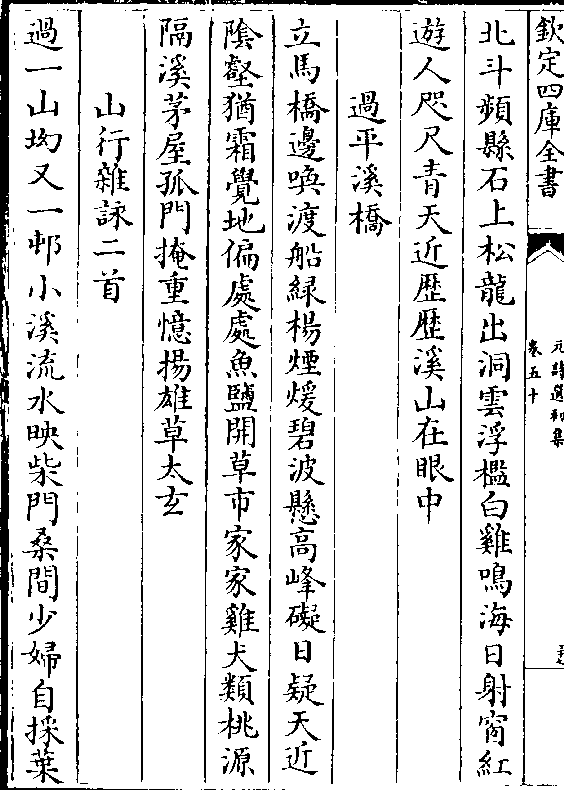 欽定四庫全書
元詩選初集
卷五十
北斗頻縣石上松龍出洞雲浮檻白雞鳴海日射窗紅
遊人咫尺青天近歷歷溪山在眼中
過平溪橋
立馬橋邊喚渡船緑楊煙煖碧波懸高峰礙日疑天近
隂壑猶霜覺地偏處處魚鹽開草市家家雞犬類桃源
隔溪茅屋孤門掩重憶揚雄草太玄
山行雜詠二首
過一山坳又一邨小溪流水映柴門桑間少婦自採葉